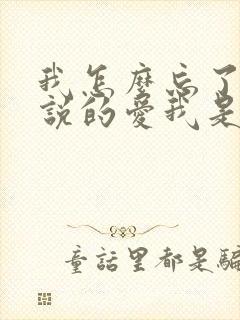 我怎麼忘了
說的愛我是
童話里都是騙